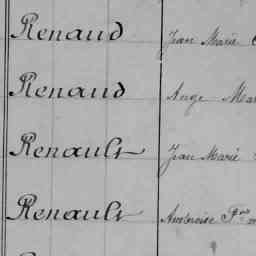 Renaud Jean Marie
Renaud Ange Mar
Renault Jean Marie
Renault Ambroise